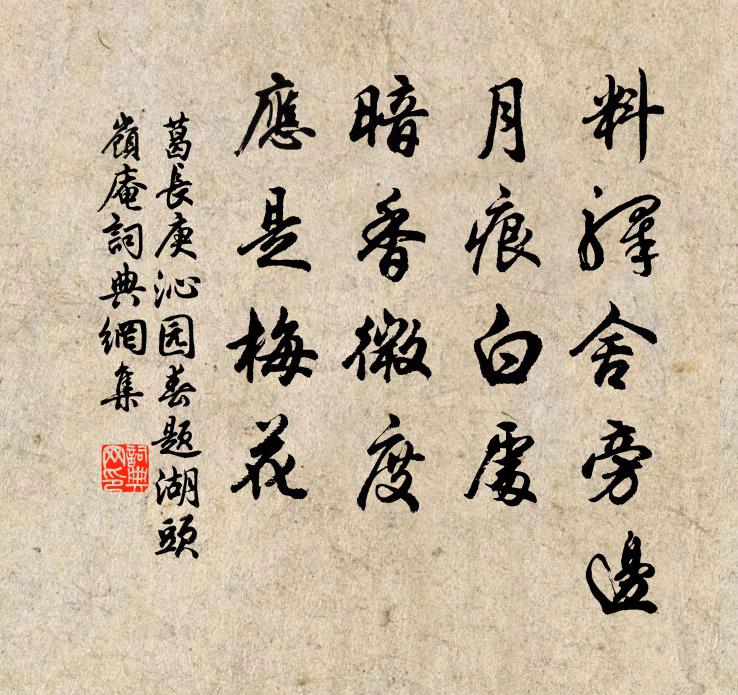 料驛舍旁邊
月痕白處
暗香微度
應是梅花
葛長庚沁园春题湖頭
嶺庵詞典網集
詞典
网印